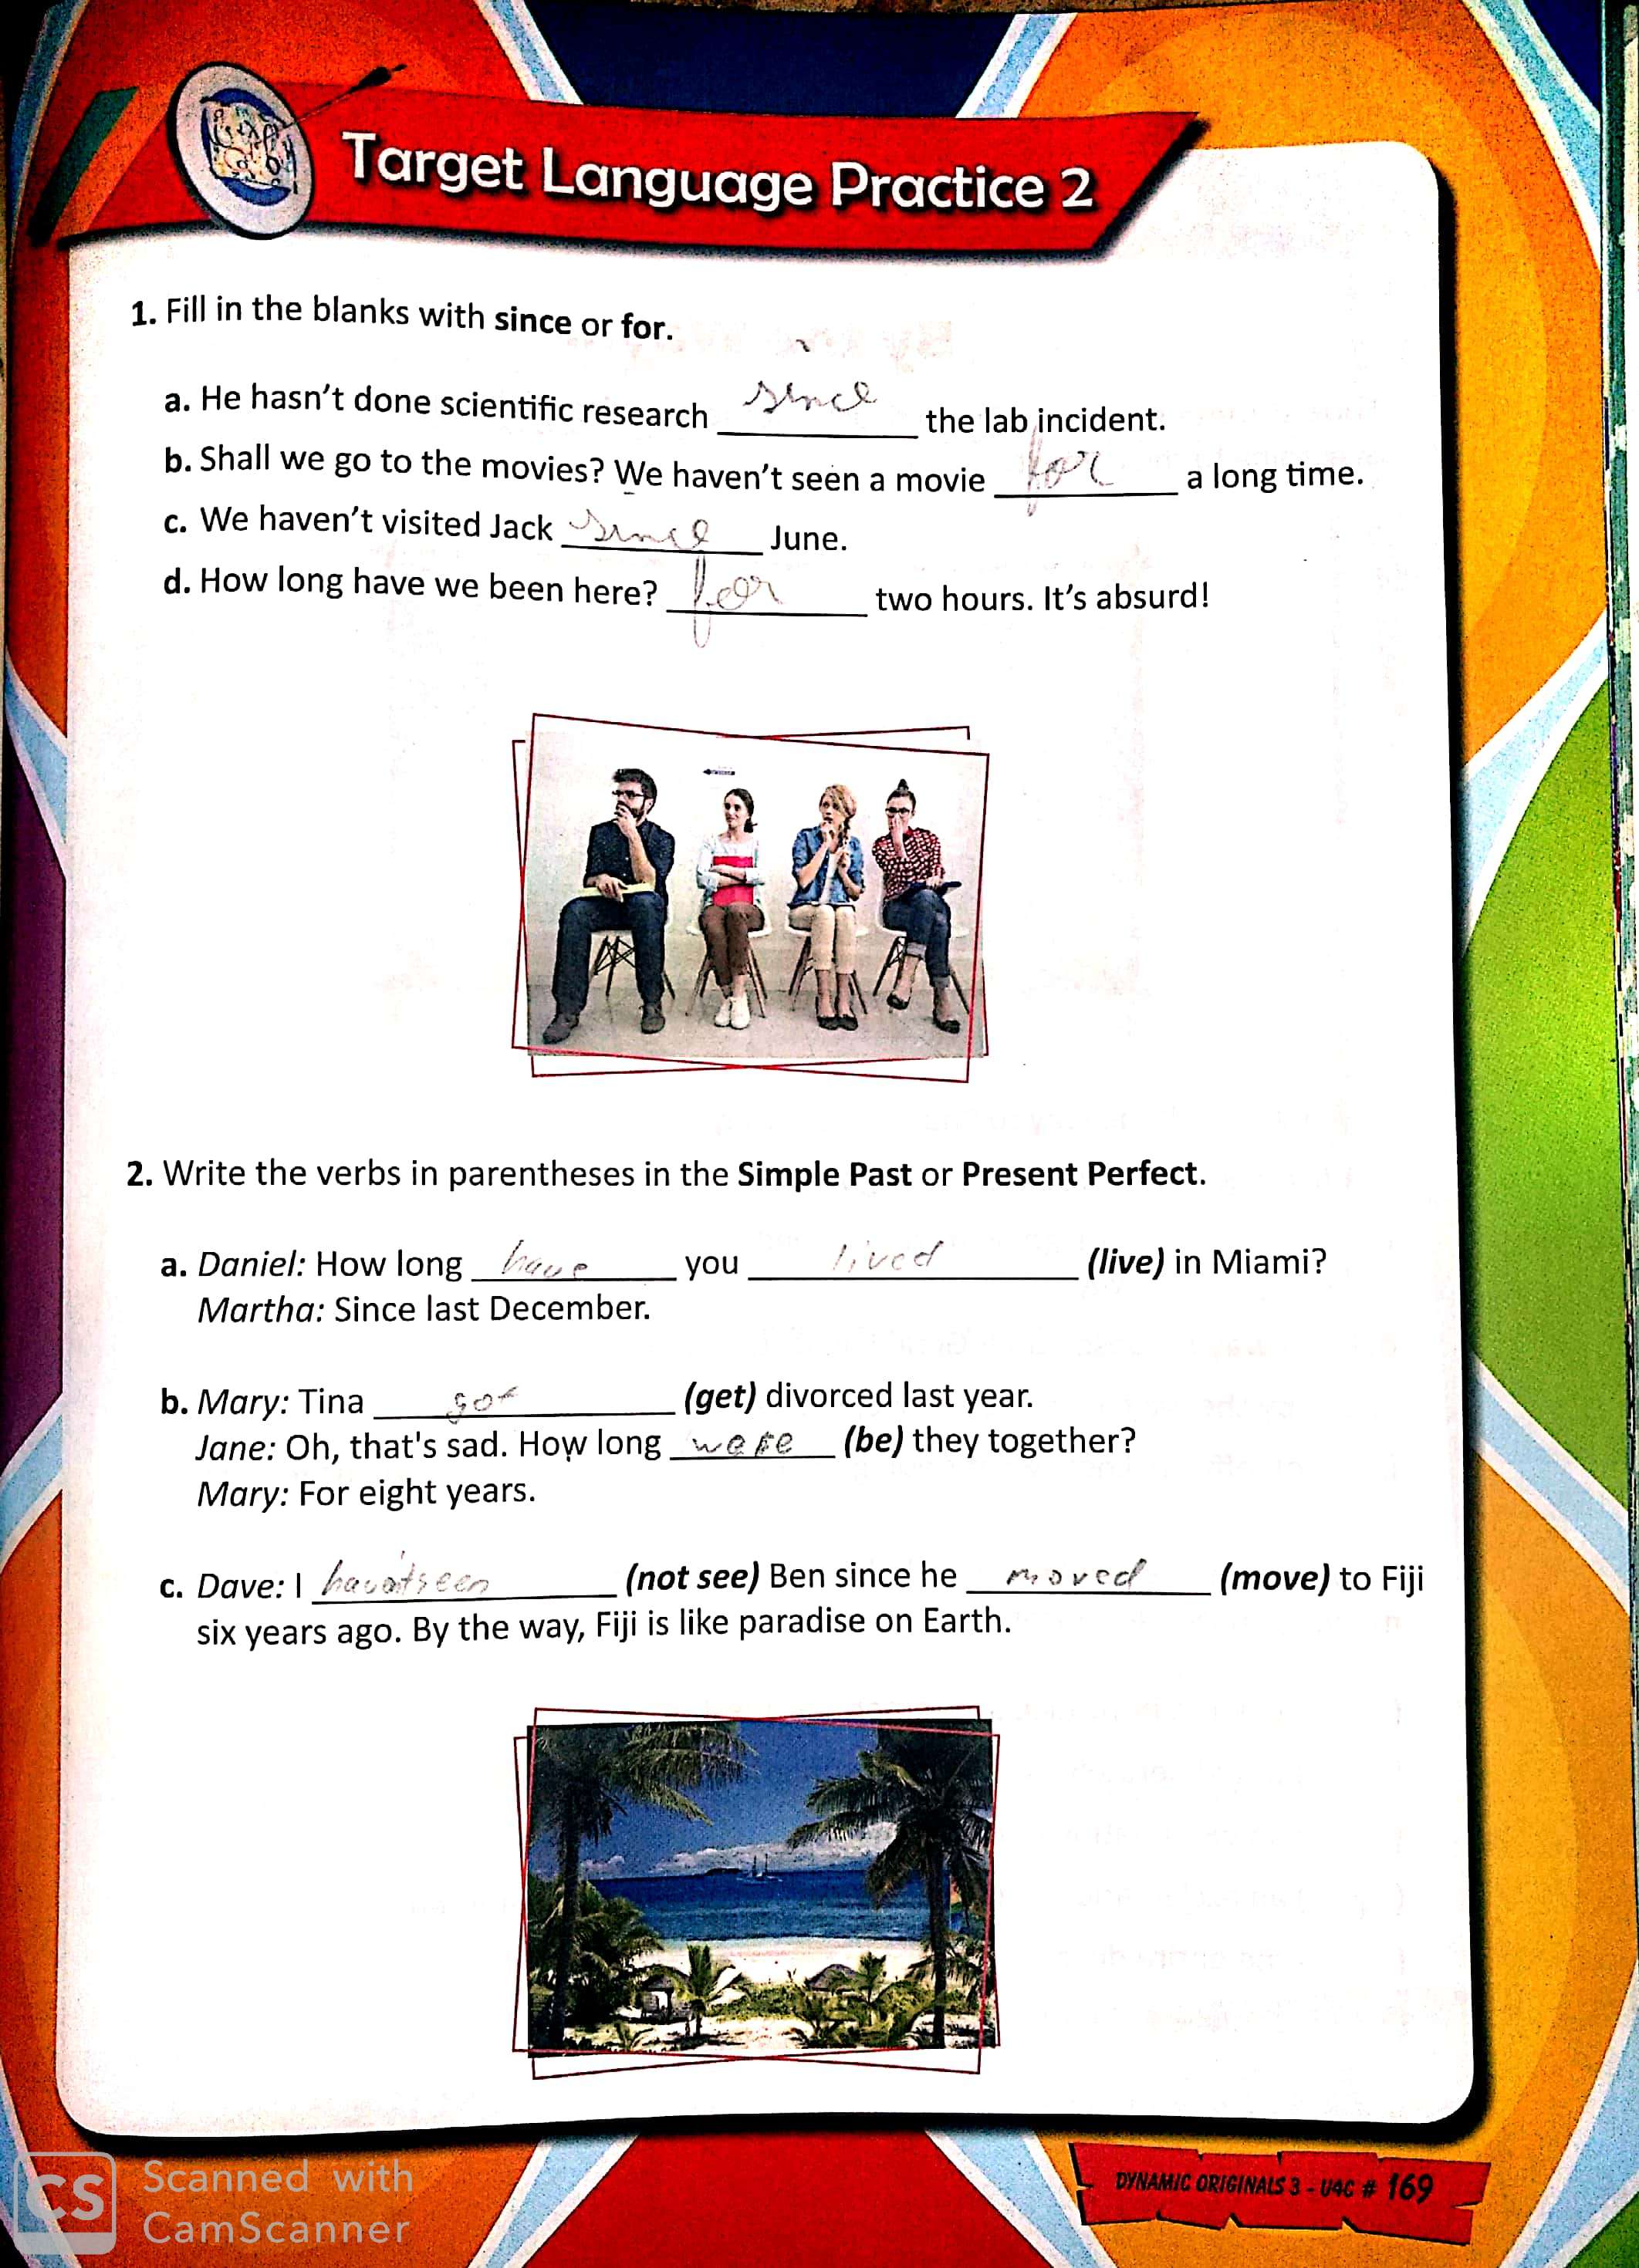 Target Language Practice 2
1. Fill in the blanks with since or for.
a. He hasn't done scientific research since the lab incident.
b. Shall we go to the movies? We haven't seen a movie for a long time.
c. We haven't visited Jack since June.
d. How long have we been here? for two hours. It's absurd!
2. Write the verbs in parentheses in the Simple Past or Present Perfect.
a. Daniel: How long have you lived (live) in Miami?
Martha: Since last December.
b. Mary: Tina got (get) divorced last year.
Jane: Oh, that's sad. How long were (be) they together?
Mary: For eight years.
c. Dave: I (not see) Ben since he moved (move) to Fiji
six years ago. By the way, Fiji is like paradise on Earth.
DYNAMIC ORIGINALS 3 - U4C # 169
CS Scanned with
CamScanner